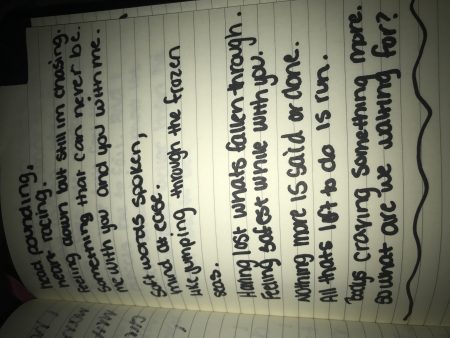 Head pounding,
heart racing.
Feeling down but still im chasing.
Something that can never be.
me with you and you with me.
Soft words spoken,
mind at ease.
like jumping through the frozen
seas.
Having lost whats fallen through.
Feeling safest while with you.
Nothing more is said or done.
All thats left to do is run.
Bodys craving something more.
So what are we waiting for?